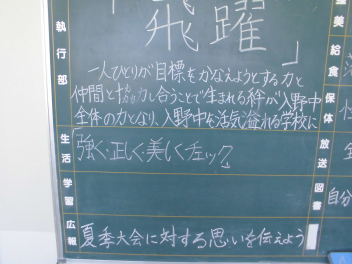 「飛躍」
執行部
一人ひとりが目標をかなえようとする力と
仲間と協力し合うことで生まれる絆が入野中
全体の力となり、入野中を活気溢れる学校に
生活
「強く正しく美しくチェック」
学習
広報
夏季大会に対する思いを伝えよう
美
給食
保体
放送
図書
自分